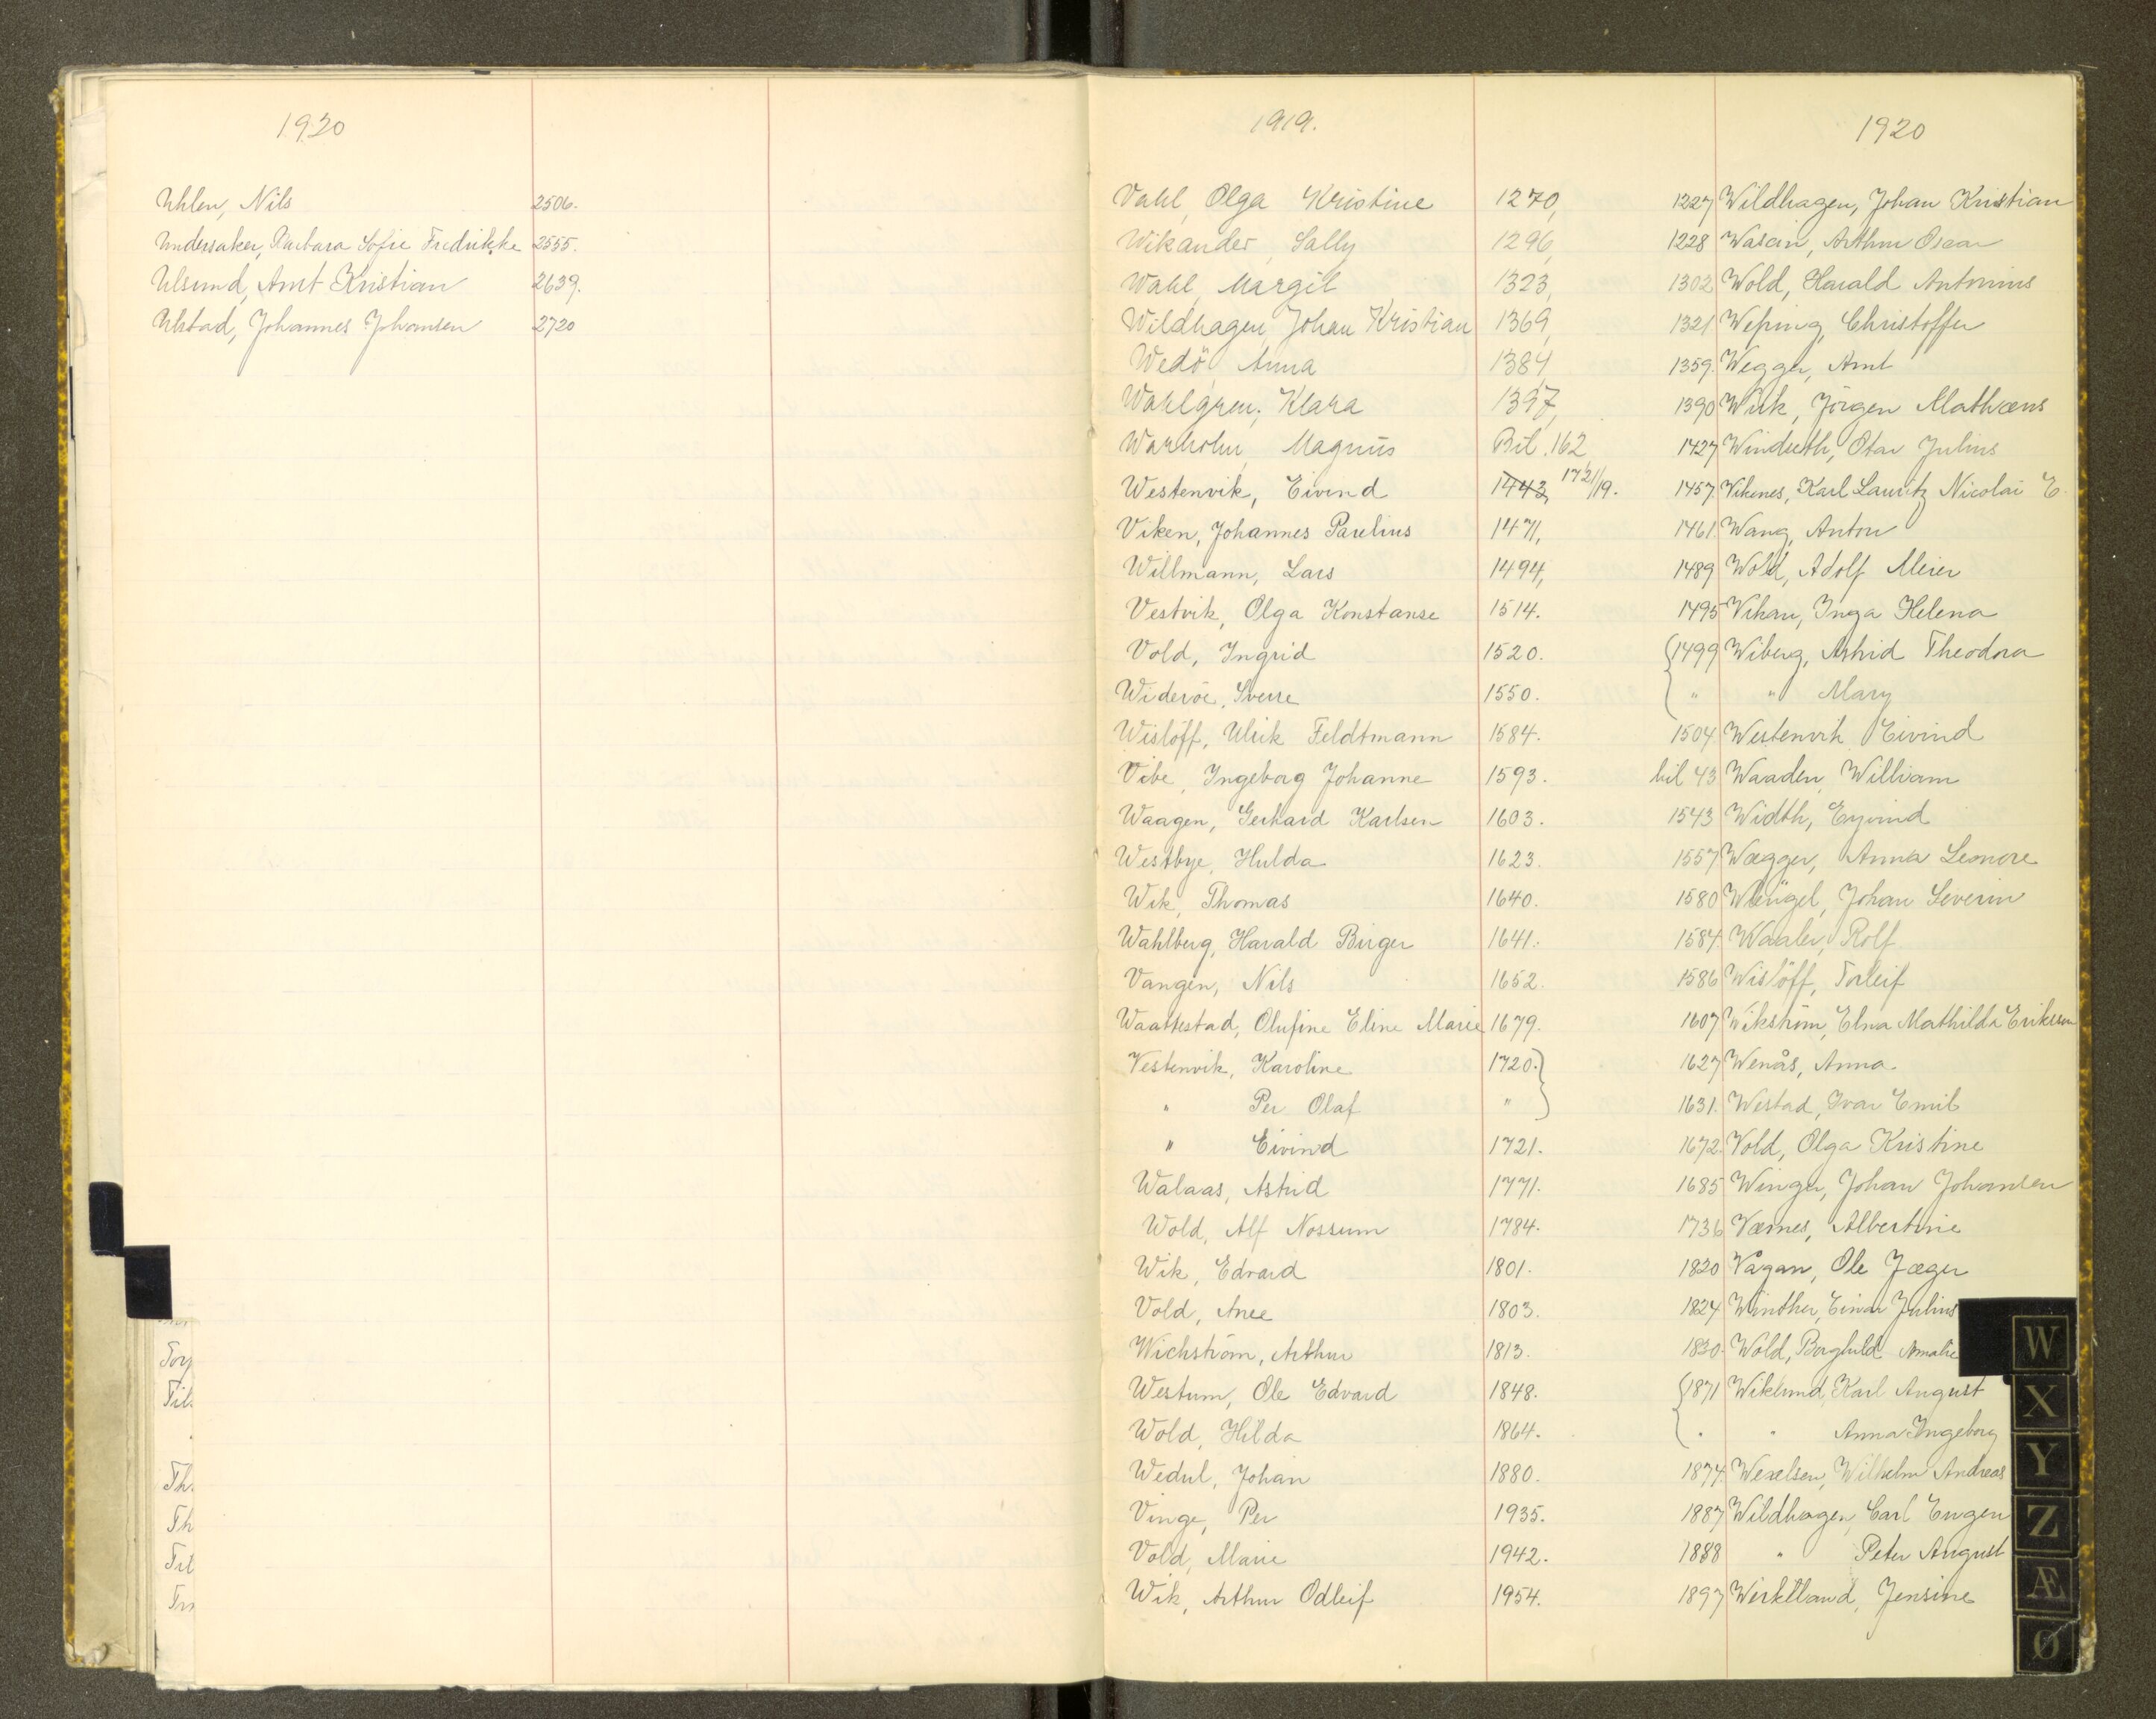 1920
Uhlen, Nils 2506.
Undersaker, Barbara Sofie Fredrikke 2555.
Ulsund, Arnt Kristian 2639.
Ulstad, Johannes Johansen 2720
Th.
Th
1919.
Vahl, Olga Kristine 1270,
Wikander, Sally 1296,
Wahl, Margit 1323,
Wildhagen, Johan Kristian 1369,
Wedö, Anna 1384,
Wahlgren, Klara 1397,
Warholm, Magnus Bil. 162
Westenvik, Eivind 1443, 1721/19.
Viken, Johannes Paulius 1471,
Willmann, Lars 1494,
Vestvik, Olga Konstanse 1514.
Vold, Ingrid 1520.
Wideröe, Sverre 1550.
Wislöff, Ulrik Feldtmann 1584.
Vibe, Ingeborg Johanne 1593.
Waagen, Gerhard Karlsen 1603.
Westbye, Hulda 1623.
Wik, Thomas 1640.
Wahlberg, Harald Birger 1641.
Vangen, Nils 1652.
Olufine Eline Marie 1679.
Vestenvik, Karoline 1720.
" Per Olaf "
" Eivind 1721.
Walaas, Astrid 1771.
Wold, Alf Nossum 1784.
Wik, Edvard 1801.
Vold, Anee 1803.
Wichström, Arthur 1813.
Westum, Ole Edvard 1848.
Wold, Hilda 1864.
Wedul, Johan 1880.
Vinge, Per 1935.
Vold, Marie 1942.
Wik, Arthur Odleif 1954.
1920
1227 Wildhagen, Johan Kristian
1228 Arthur Oscar
1302 Wold, Harald Antonius
1321 Christoffer
1359. Wegger, Arnt
1390 Wiik, Jörgen Mathæus
1427 Otar Julius
1457. Vikenes, Karl Lauritz Nicolai E.
1461. Wang, Anton
1489 Wold, Adolf Meier
1495 Vikan, Inga Helena
1499 Wiberg, Astrid Theodora
" " Mary
1504 Westenvik Eivind
bil 43 Waaden, William
1543 Width, Eyvind
1557 Wægger, Anna Leonore
1580 Johan Severin
1584 Waaler, Rolf
1586 Wislöff, Torleif
1607 Wikström, Elna Mathilda Eriksson
1627 Wenås, Anna
1631. Westad, Ivar Emil
1672. Vold, Olga Kristine
1685 Winger, Johan Johansen
1736 Værnes, Albertine
1820 Vågan, Ole Jæger
1824 Winther, Einar Julius
1830. Wold, Borghild Amalie
1871 Wiklund, Karl August
" " Anna Ingeborg
1874. Wexelsen, Wilhelm Andreas
1887 Wildhagen, Carl Eugen
1888 " Peter August
1897 Jensine
W
X
Y
Z
Æ
Ø